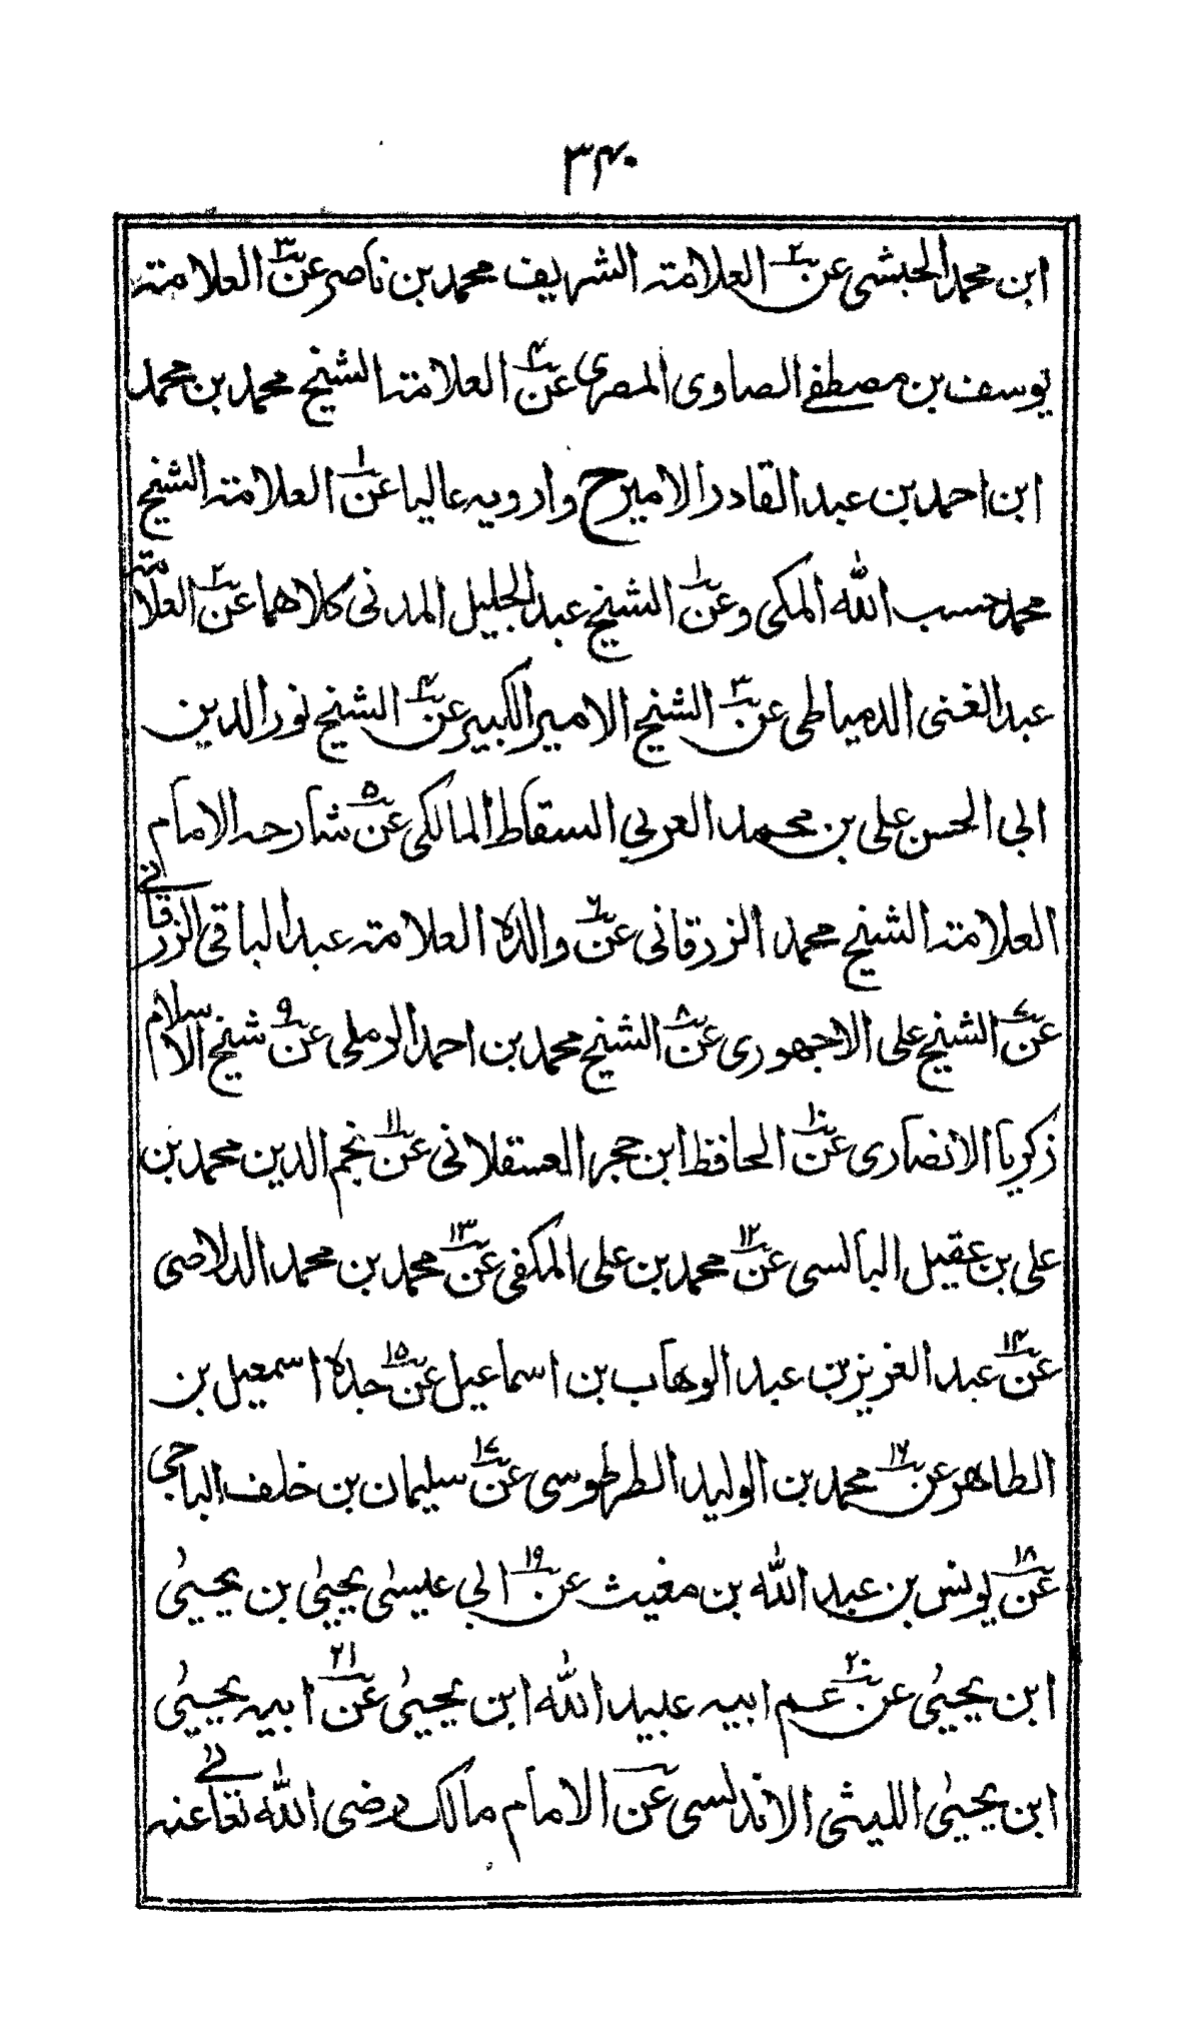 ۳۴۰
ابن محمد الحبشی عن۲ العلامتہ الشریف محمد بن ناصر عن۳ العلامتہ
یوسف بن مصطفے الصاوی المصری عن۴ العلامتہ الشیخ محمد بن محمد
ابن احمد بن عبد القادر الامیر ح وارویہ عالیا عن۱ العلامتہ الشیخ
محمد حسب اللہ المکی وعن۱ الشیخ عبد الجلیل المدنی کلاھما عن۲ العلامتہ
عبد الغنی الدمیاطی عن۳ الشیخ الامیر الکبیر عن۴ الشیخ نور الدین
ابی الحسن علی بن محمد العربی السقاط المالکی عن۵ شارحہ الامام
العلامتہ الشیخ محمد الزرقانی عن۶ والدہ العلامتہ عبد الباقی الزرقانے
عن۷ الشیخ علی الاجھوری عن۸ الشیخ محمد بن احمد الرملی عن۹ شیخ الاسلام
زکریا الانصاری عن۱۰ الحافظ ابن حجر العسقلانی عن۱۱ نجم الدین محمد بن
علی بن عقیل البالسی عن۱۲ محمد بن علی المکفی عن۱۳ محمد بن محمد الدلاصی
عن۱۴ عبد العزیز بن عبد الوھاب بن اسماعیل عن۱۵ جدہ اسمعیل بن
الطاھر عن۱۶ محمد بن الولید الطرطوسی عن۱۷ سلیمان بن خلف الباجی
عن۱۸ یونس بن عبد اللہ بن مغیث عن۱۹ ابی عیسٰی یحییٰ بن یحییٰ
ابن یحییٰ عن۲۰ عم ابیہ عبید اللہ ابن یحییٰ عن۲۱ ابیہ یحییٰ
ابن یحییٰ اللیثی الاندلسی عن الامام مالک رضی اللہ تعا عنہ